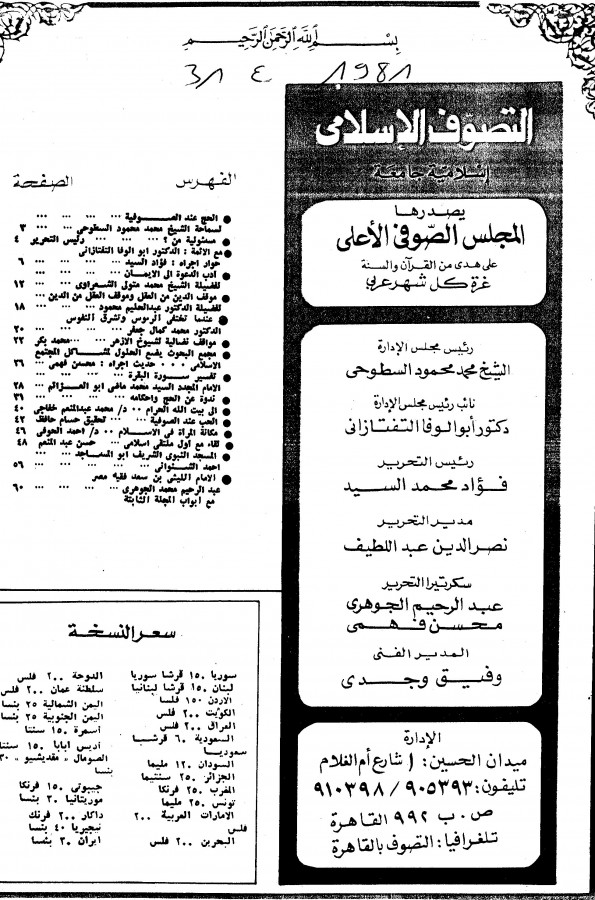 بسم الله الرحمن الرحيم
31 ٤ 1981
التصوف الإسلامى
إسلامية جامعة
يصدرها
المجلس الصوفى الأعلى
على هدى من القرآن والسنة
غرة كل شهر عربي
رئيس مجلس الإدارة
الشيخ محمد محمود السطوحى
نائب رئيس مجلس الإدارة
دكتور أبو الوفا التفتازانى
رئيس التحرير
فؤاد محمد السيد
مدير التحرير
نصر الدين عبد اللطيف
سكرتيرا التحرير
عبد الرحيم الجوهرى
محسن فهمى
المدير الفنى
وفيق وجدى
الإدارة
ميدان الحسين: ١ شارع أم الغلام
تليفون: ٩٠٥٣٩٣ / ٩١٠٣٩٨
ص . ب ٩٩٢ القاهرة
تلغرافيا: التصوف بالقاهرة
الفهرس الصفحة
● الحج عند الصوفية ... ... ...
لسماحة الشيخ محمد محمود السطوحى ... ٣
● مسئولية من ؟ ... ... ... رئيس التحرير ٤
● مع الائمة : الدكتور ابو الوفا التفتازانى
حوار اجراه : فؤاد السيد ... ... ... ٦
● ادب الدعوة الى الايمان ... ... ...
لفضيلة الشيخ محمد متولى الشعراوى ... ١٢
● موقف الدين من العقل وموقف العقل من الدين ...
لفضيلة الدكتور عبدالحليم محمود ... ... ١٨
● عندما تختفى الرءوس وتشرق النفوس
الدكتور محمد كمال جعفر ... ... ... ٢٠
● مواقف نضالية لشيوخ الازهر ... محمد بكر ٢٢
● مجمع البحوث يضع الحلول لمشاكل المجتمع
الاسلامى ... حديث اجراه : محسن فهمى ٣٦
● تفسير سورة البقرة ... ... ...
الامام المجدد السيد محمد ماضى ابو العزائم ... ٣٨
● ندوة عن الحج واحكامه ... ... ... ٣٩
● الى بيت الله الحرام ... د/ محمد عبدالمنعم خفاجى ٤٠
● الحب عند الصوفية ... تحقيق حسام حافظ ٤٢
● مكانة المرأة في الاسلام ... د/ احمد الحوفى ٤٦
● لقاء مع اول ملتقى اسلامى ... حسن عبد المنعم ٤٨
● المسجد النبوى الشريف ابو المساجد ... ...
احمد الشنوانى ... ... ... ٥٦
● الامام الليثى بن سعد فقيه مصر
عبد الرحيم محمد الجوهرى ... ... ... ٦٠
مع ابواب المجلة الثابتة
سعر النسخة
سوريا ١٥٠ قرشا سوريا
لبنان ١٥٠ قرشا لبنانيا
الاردن ١٥٠ فلسا
الكويت ٢٠٠ فلس
العراق ٢٠٠ فلس
السعودية ٦٠ قرشا
سعوديا
السودان ١٢٠ مليما
الجزائر ٢٥٠ سنتيما
المغرب ٢٥٠ فرنكا
تونس ٢٥٠ مليما
الامارات العربية ٢٠٠
فلس
البحرين ٢٠٠ فلس
الدوحة ٢٠٠ فلس
سلطنة عمان ٢٠٠ فلس
اليمن الشمالية ٢٥ بنسا
اليمن الجنوبية ٢٥ بنسا
أسمرة ١٥٠ سنتا
أديس ابابا ١٥٠ سنتا
الصومال « مقديشيو » ٣٠
بنسا
جيبوتى ١٥٠ فرنكا
موريتانيا ٣٠ بنسا
داكار ٢٠٠ فرنك
نيجيريا ٤٠ بنسا
ايران ٣٠ بنسا